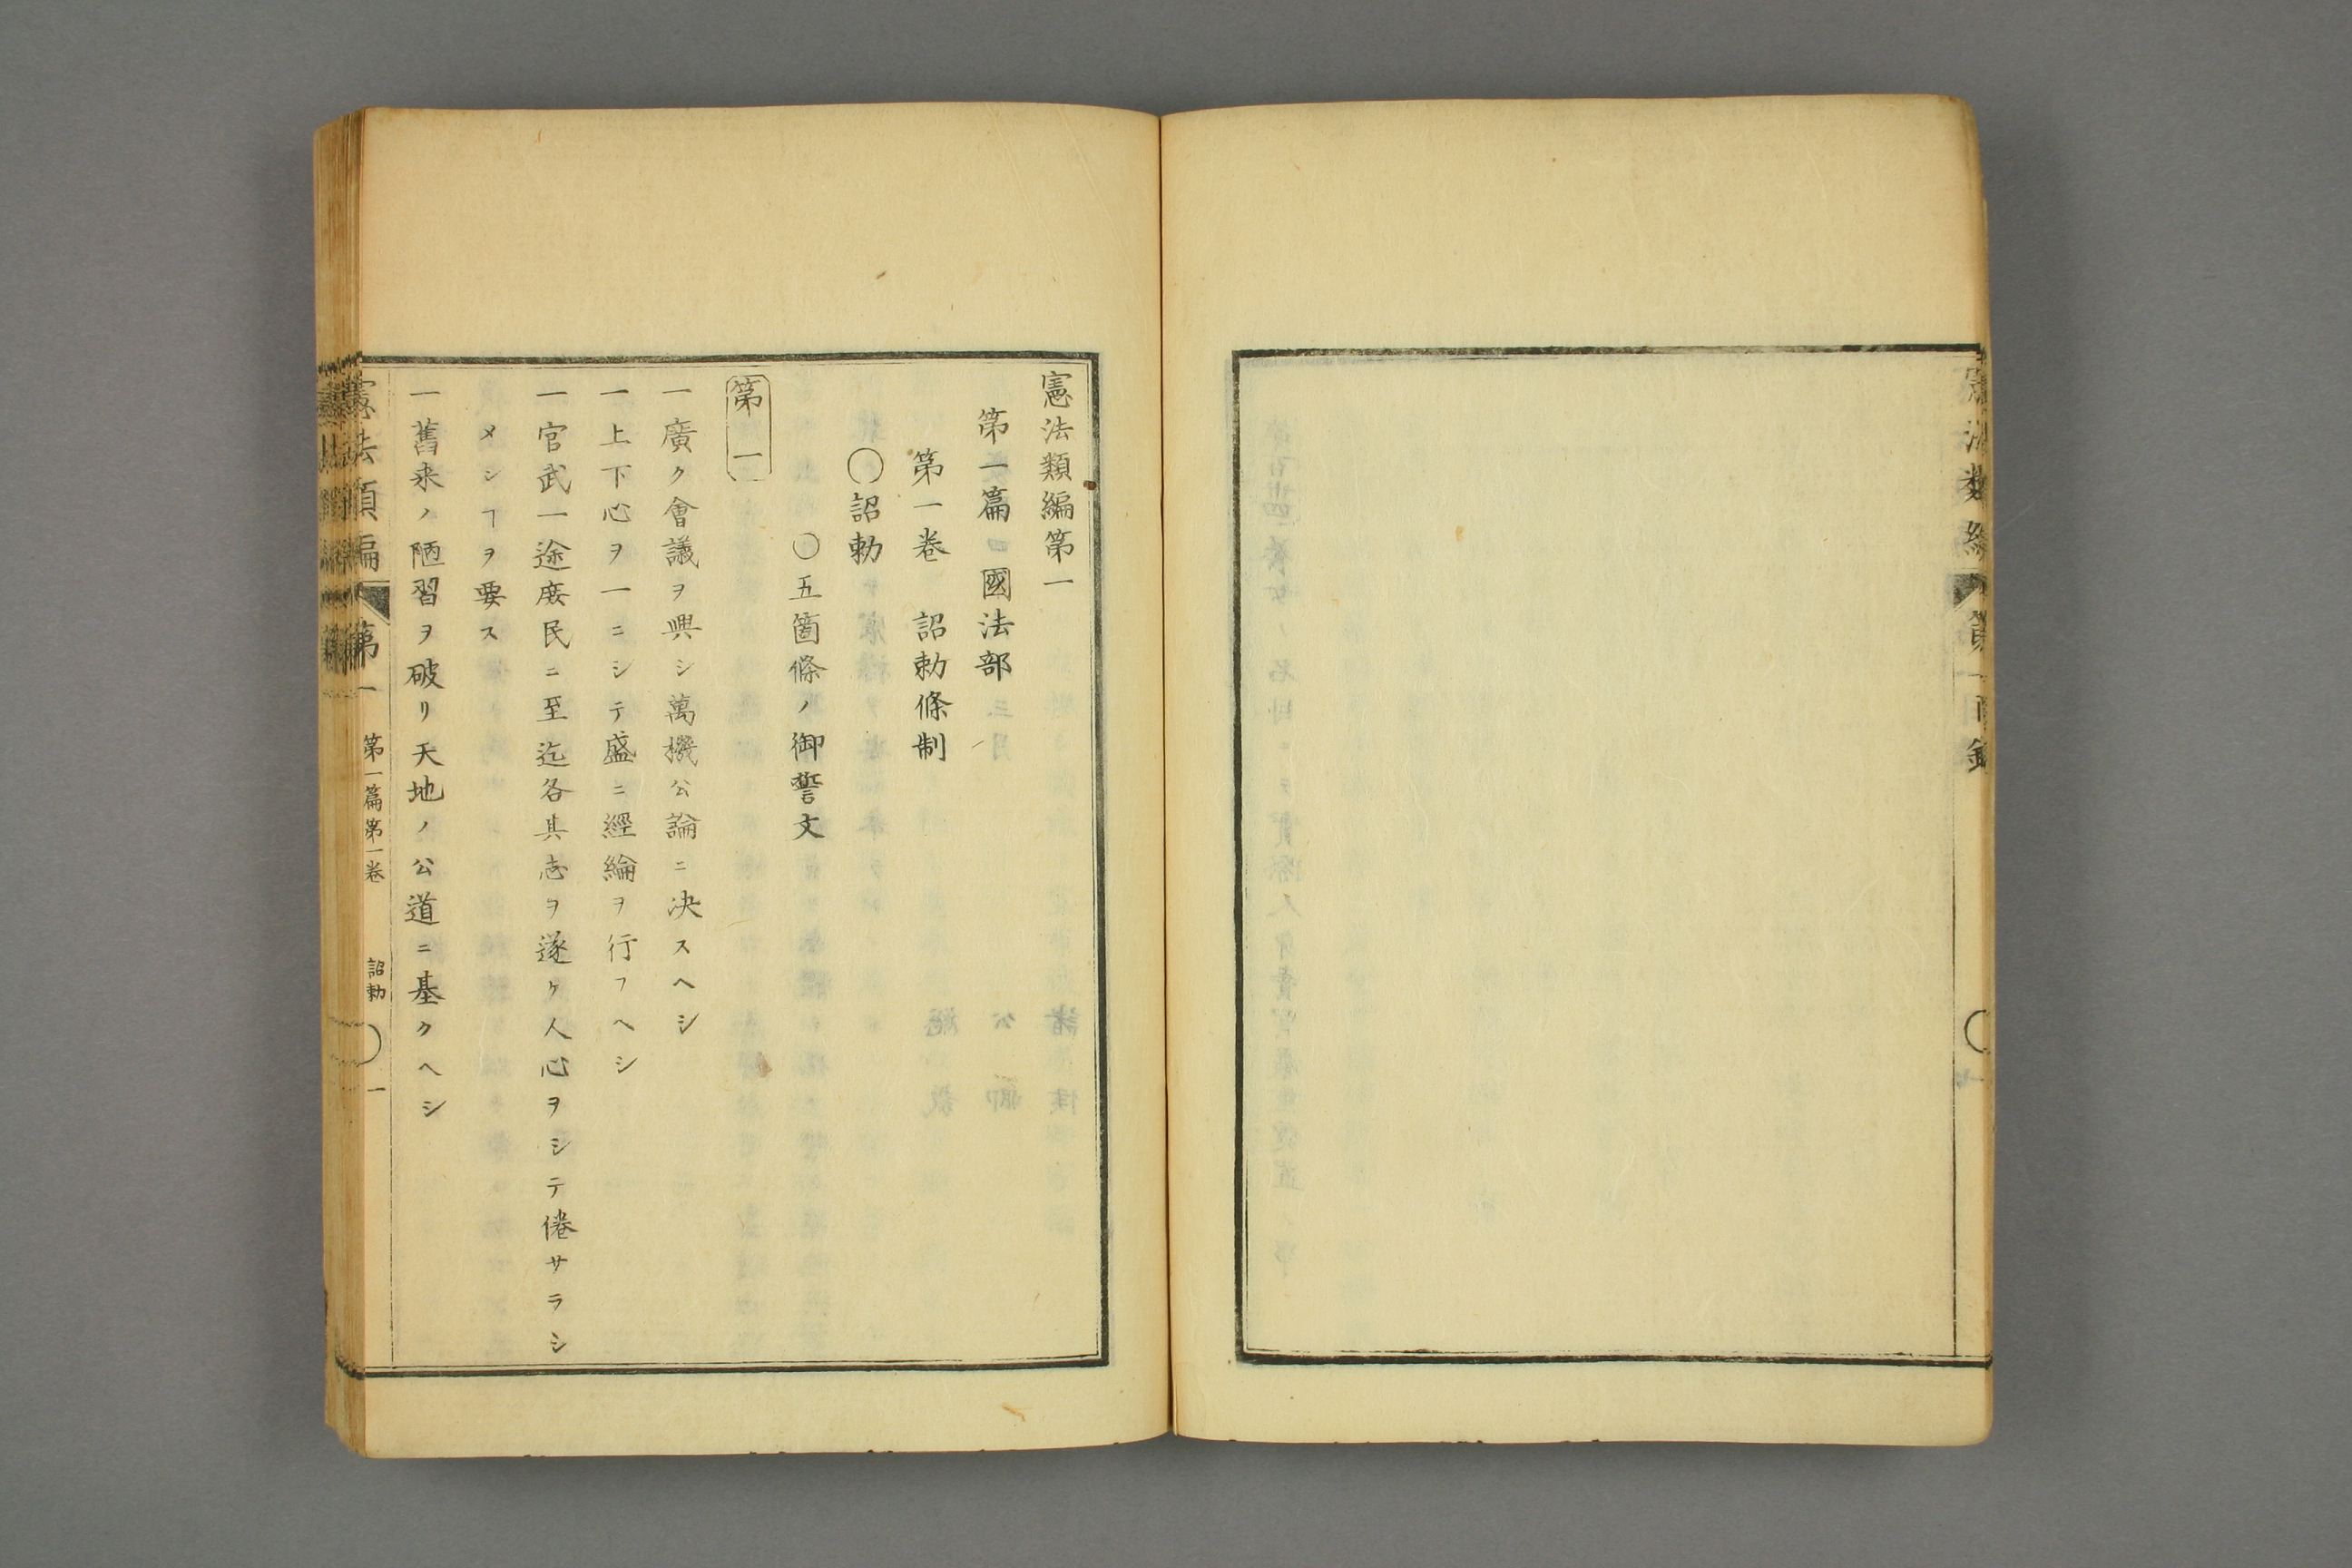 憲法類編第一
第一篇 國法部
第一卷 詔勅條制
〇詔勅
〇五箇條ノ御誓文
第一
一廣ク會議ヲ興シ萬機公論ニ決スヘシ
一上下心ヲ一ニシテ盛ニ經綸ヲ行フヘシ
一官武一途庶民ニ至迄各其志ヲ遂ケ人心ヲシテ倦サラシ
メシヿヲ要ス
一舊来ノ陋習ヲ破リ天地ノ公道ニ基クヘシ
憲法類編 第一 第一篇第一卷 詔勅 〇 一